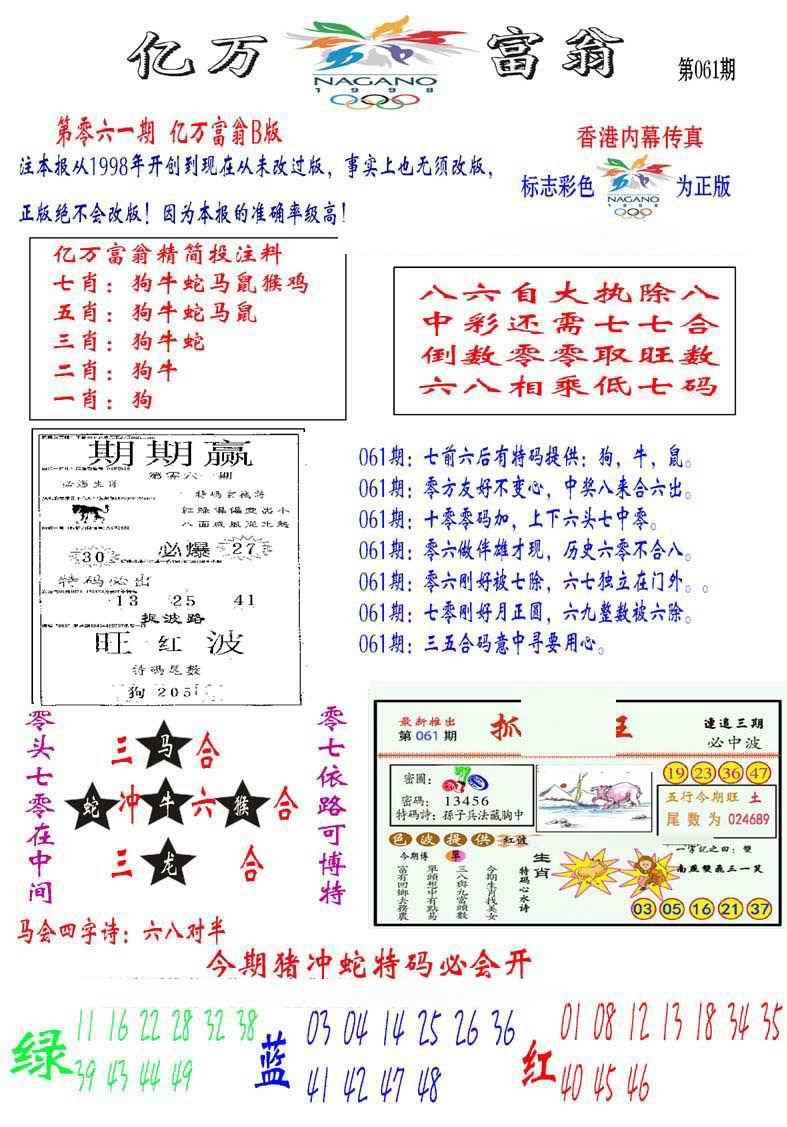 亿万富翁
NAGANO
1998
第061期
第零六一期 亿万富翁B版
注本报从1998年开创到现在从未改过版，事实上也无须改版，
正版绝不会改版！因为本报的准确率级高！
香港内幕传真
标志彩色
NAGANO
为正版
亿万富翁精简投注料
七肖：狗牛蛇马鼠猴鸡
五肖：狗牛蛇马鼠
三肖：狗牛蛇
二肖：狗牛
一肖：狗
八六自大执除八
中彩还需七七合
倒数零零取旺数
六八相乘低七码
期期赢
第零六一期
必爆
30
27
特码必出
13 25 41
捉波路
旺 红 波
特码尾数
狗 205
061期：七前六后有特码提供：狗，牛，鼠。
061期：零方友好不变心，中奖八来合六出。
061期：十零零码加，上下六头七中零。
061期：零六做伴雄才现，历史六零不合八。
061期：零六刚好被七除，六七独立在门外。。
061期：七零刚好月正圆，六九整数被六除。
061期：三五合码意中寻要用心。
零头七零在中间
三 马 合
蛇 冲 牛 六 猴 合
三 龙 合
零七依路可博特
最新推出
第061期
抓
王
连追三期
必中波
密圖：
密碼：13456
特碼詩：孫子兵法藏胸中
19 23 36 47
五行今期旺 土
尾数为 024689
色波提供 红波
今期博 單
富有回鄉去務農
單頭想中有點易
三八與九當頭數
今期生肖找美女
生肖
特码心水诗
一字記之曰：雙
南燕雙飛三一笑
03 05 16 21 37
马会四字诗：六八对半
今期猪冲蛇特码必会开
绿
11 16 22 28 32 38
39 43 44 49
蓝
03 04 14 25 26 36
41 42 47 48
红
01 08 12 13 18 34 35
40 45 46